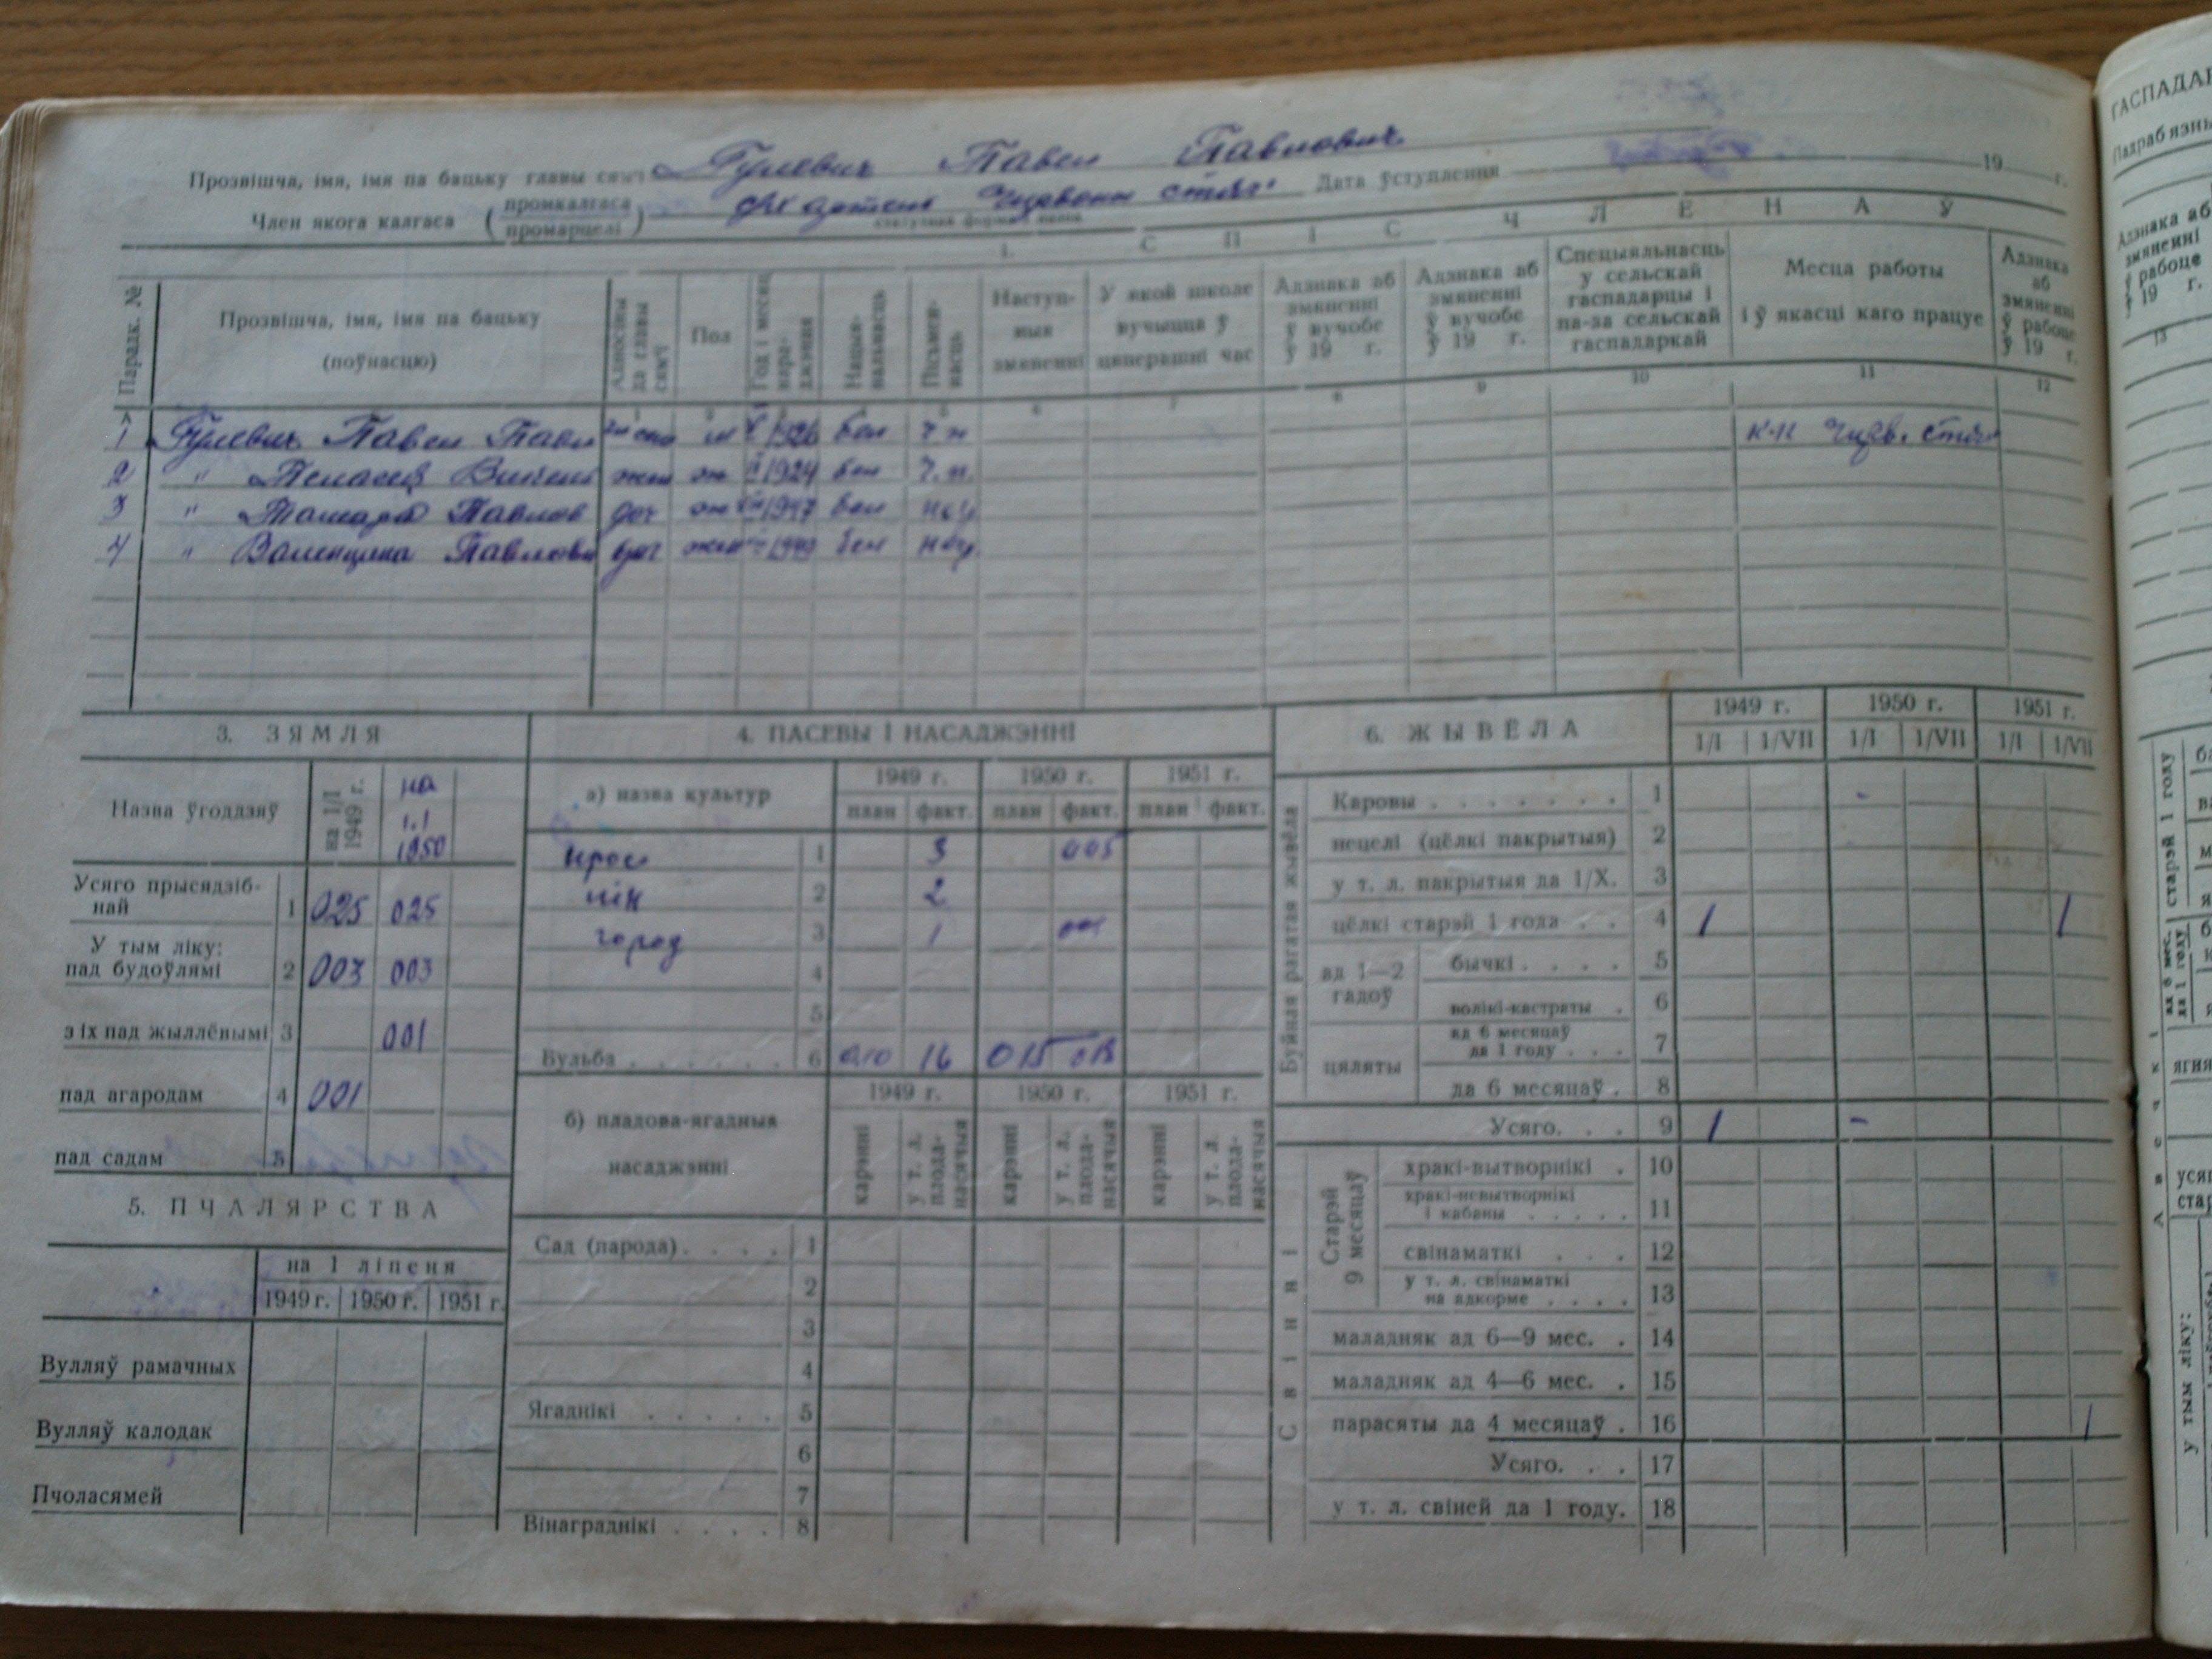 Прозвішча, імя, імя па бацьку главы сям'і Гулевич Павел Павлович
Член якога калгаса (промкалгаса / промарцелі) с/х артель Чырвоны сцяг Дата ўступлення 19 г.
1. СПІС ЧЛЕНАЎ
Парадк. № Прозвішча, імя, імя па бацьку (поўнасцю) Адносіны да главы сям'і Пол Год і месяц нараджэння Нацыянальнасць Пісьменнасць Наступныя змяненні У якой школе вучыцца ў цяперашні час Адзнака аб змяненні ў вучобе ў 19 г. Адзнака аб змяненні ў вучобе ў 19 г. Спецыяльнасць у сельскай гаспадарцы і па-за сельскай гаспадаркай Месца работы і ў якасці каго працуе Адзнака аб змяненні ў рабоце ў 19 г.
6 7 8 9 10 11 12
1 Гулевич Павел Павл м 1926 бел к-п Чырв. сцяг
2 " Вікен жен ж 1924 бел
3 " Тамара Павлов доч ж 1947 бел неп
4 " Валенцина Павловн доч жен 1949 бел неп
3. ЗЯМЛЯ
Назва ўгоддзяў на 1/I 1949 г. на 1.1 1950
Усяго прысядзібнай 1 025 025
У тым ліку: пад будоўлямі 2 003 003
з іх пад жыллёнымі 3 001
пад агародам 4 001
пад садам 5
5. ПЧАЛЯРСТВА
на 1 ліпеня
1949 г. 1950 г. 1951 г.
Вулляў рамачных
Вулляў калодак
Пчоласямей
4. ПАСЕВЫ І НАСАДЖЭННІ
а) назва культур 1949 г. 1950 г. 1951 г.
план факт. план факт. план факт.
прос 1 3 005
2 2
город 3 1
4
5
Бульба 6 010 16 015 015
б) пладова-ягадныя насаджэнні 1949 г. 1950 г. 1951 г.
карэнні у т. л. пладанасячыя карэнні у т. л. пладанасячыя карэнні у т. л. пладанасячыя
Сад (парода) 1
2
3
4
Ягаднікі 5
6
7
Вінаграднікі 8
6. ЖЫВЁЛА 1949 г. 1950 г. 1951 г.
1/I 1/VII 1/I 1/VII 1/I 1/VII
Буйная рагатая жывёла
Каровы 1 -
нецелі (цёлкі пакрытыя) 2
у т. л. пакрытыя да 1/X. 3
цёлкі старэй 1 года 4 1 1
ад 1—2 гадоў бычкі 5
волікі-кастраты 6
цяляты ад 6 месяцаў да 1 году 7
да 6 месяцаў 8
Усяго 9 1 -
Свінні
Старэй 9 месяцаў хракі-вытворнікі 10
хракі-невытворнікі і кабаны 11
свінаматкі 12
у т. л. свінаматкі на адкорме 13
маладняк ад 6—9 мес. 14
маладняк ад 4—6 мес. 15
парасяты да 4 месяцаў 16 1
Усяго 17
у т. л. свіней да 1 году. 18